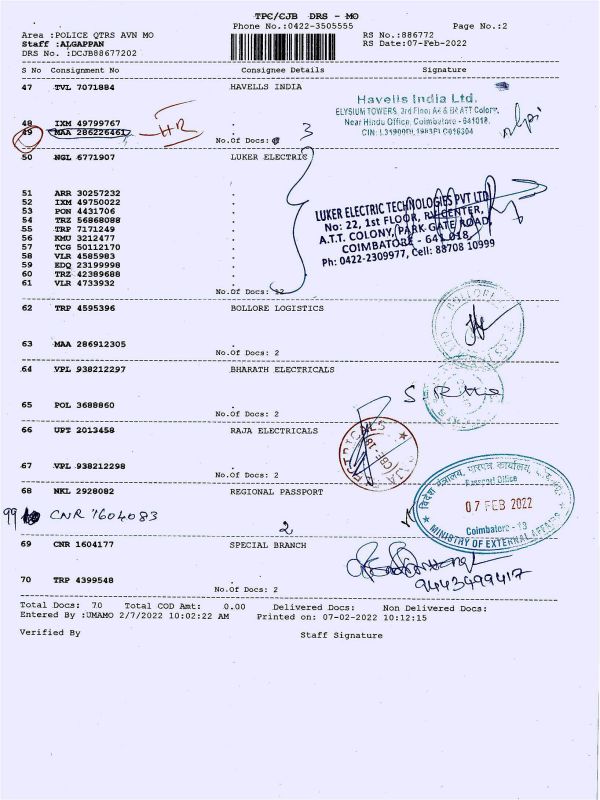 TPC/CJB DRS - MO
Phone No.:0422-3505555
Page No.:2
Area :POLICE QTRS AVN MO
RS No.:886772
Staff :ALGAPPAN
RS Date:07-Feb-2022
DRS No. :DCJB88677202
S No Consignment No Consignee Details Signature
47 TVL 7071884 HAVELLS INDIA
Havells India Ltd.
ELYSIUM TOWERS, 3rd Floor
Near Hindu Office, Coimbatore - 641018.
48 IXM 49799767
49 MAA 286226461 HR
No.Of Docs: 3
50 NGL 6771907 LUKER ELECTRIC
51 ARR 30257232
52 IXM 49750022
53 PON 4431706
54 TRZ 56868088
55 TRP 7171249
56 KMU 3212477
57 TCG 50112170
58 VLR 4585983
59 EDQ 23199998
60 TRZ 42389688
61 VLR 4733932
No.Of Docs: 12
LUKER ELECTRIC TECHNOLOGIES PVT LTD
No: 22, 1st FLOOR, RV CENTER,
A.T.T. COLONY, PARK GATE ROAD
COIMBATORE - 641 018.
Ph: 0422-2309977, Cell: 88708 10999
62 TRP 4595396 BOLLORE LOGISTICS
63 MAA 286912305
No.Of Docs: 2
64 VPL 938212297 BHARATH ELECTRICALS
65 POL 3688860
No.Of Docs: 2
66 UPT 2013458 RAJA ELECTRICALS
67 VPL 938212298
No.Of Docs: 2
68 NKL 2928082 REGIONAL PASSPORT
CNR 1604083
2
Passport Office
07 FEB 2022
Coimbatore - 18
MINISTRY OF EXTERNAL AFFAIRS
69 CNR 1604177 SPECIAL BRANCH
9443499417
70 TRP 4399548
No.Of Docs: 2
Total Docs: 70 Total COD Amt: 0.00 Delivered Docs: Non Delivered Docs:
Entered By :UMAMO 2/7/2022 10:02:22 AM Printed on: 07-02-2022 10:12:15
Verified By Staff Signature